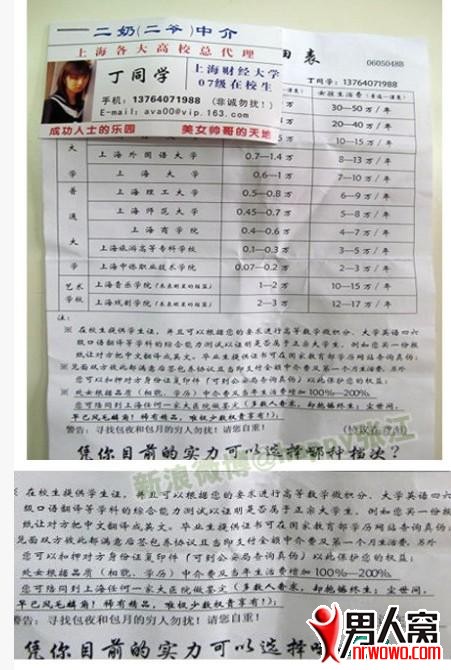 二奶(二爷)中介
上海各大高校总代理
丁同学
上海财经大学
07级在校生
手机:13764071988 (非诚勿扰!)
E-mail:ava00@vip.163.com
成功人士的乐园 美女帅哥的天地
表
0605048B
丁同学:13764071988
女孩生活费
30—50万/年
20—40万/年
10—15万/年
上海外国语大学 0.7—1.4万 8—13万/年
上海大学 0.6—1万 7—10万/年
上海理工大学 0.5—0.8万 6—9万/年
上海师范大学 0.45—0.7万 5—8万/年
上海商学院 0.4—0.6万 4—7万/年
上海旅游高等专科学校 0.1—0.3万 3—5万/年
上海中侨职业技术学院 0.07—0.2万 2—3万/年
大学普通大学
艺术学校
上海音乐学院(未来明星的摇篮) 1—2万 10—15万/年
上海戏剧学院(未来明星的摇篮) 2—3万 12—17万/年
注:
※ 在校生提供学生证,并且可以根据您的要求进行高等数学微积分、大学英语四六
级口语翻译等学科的综合能力测试以证明是否属于正宗大学生,例如您买一份报
纸让对方把中文翻译成英文。毕业生提供证书可在国家教育部学历网站查询真伪;
※ 见面双方彼此都满意后签包养协议且当即支付全额中介费及第一个月生活费。另外
您可以和押对方身份证复印件(可到公安局查询真伪)以此保护您的权益;
※ 处女根据品质(相貌、学历)中介费及当年生活费增加100%—200%。
您可陪同到上海任何一家大医院做鉴定(多数人香求,却抱憾终生;尘世间,
早已凤毛麟角!稀有精品,唯极少数权贵享有!);
警告:寻找包夜和包月的穷人勿扰!请您自重!
凭你目前的实力可以选择哪种档次?
新浪微博@happy张江
※ 在校生提供学生证,并且可以根据您的要求进行高等数学微积分、大学英语四六
级口语翻译等学科的综合能力测试以证明是否属于正宗大学生,例如您买一份报
纸让对方把中文翻译成英文。毕业生提供证书可在国家教育部学历网站查询真伪;
见面双方彼此都满意后签包养协议且当即支付全额中介费及第一个月生活费。另外
您可以和押对方身份证复印件(可到公安局查询真伪)以此保护您的权益;
处女根据品质(相貌、学历)中介费及当年生活费增加100%—200%。
您可陪同到上海任何一家大医院做鉴定(多数人香求,却抱憾终生;尘世间,
早已凤毛麟角!稀有精品,唯极少数权贵享有!);
警告:寻找包夜和包月的穷人勿扰!请您自重!
凭你目前的实力可以选择哪种档
男人窝
nrwowo.com